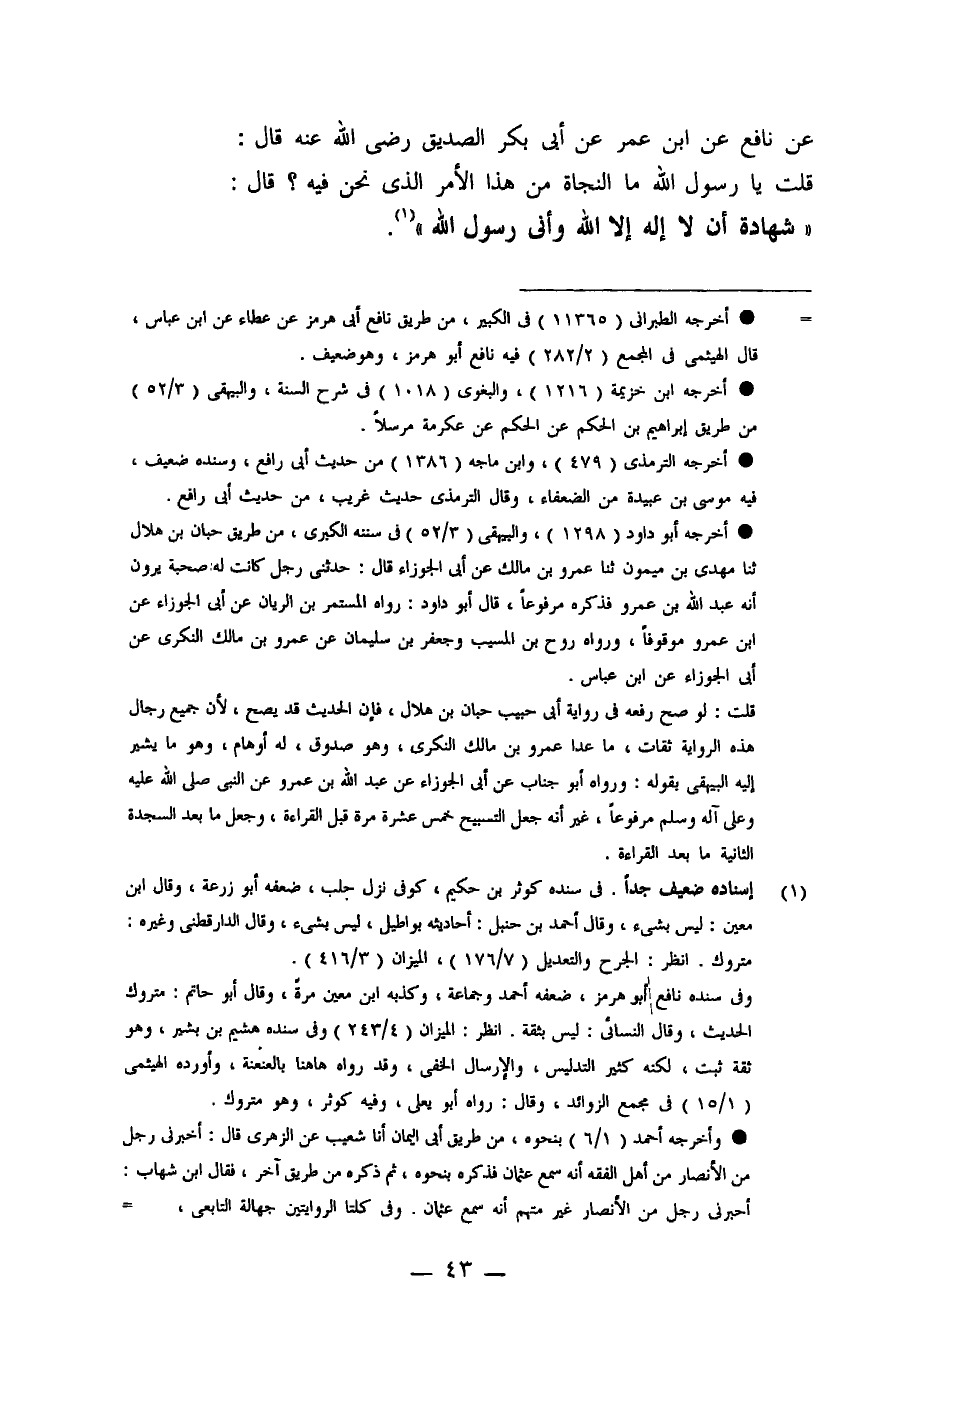 عن نافع عن ابن عمر عن أبى بكر الصديق رضى الله عنه قال :
قلت يا رسول الله ما النجاة من هذا الأمر الذى نحن فيه ؟ قال :
« شهادة أن لا إله إلا الله وأنى رسول الله »(١).
= ● أخرجه الطبرانى ( ١١٣٦٥ ) فى الكبير ، من طريق نافع أبى هرمز عن عطاء عن ابن عباس ،
قال الهيثمى فى المجمع ( ٢٨٢/٢ ) فيه نافع أبو هرمز ، وهوضعيف .
● أخرجه ابن خزيمة ( ١٢١٦ ) ، والبغوى ( ١٠١٨ ) فى شرح السنة ، والبيهقى ( ٥٢/٣ )
من طريق إبراهيم بن الحكم عن الحكم عن عكرمة مرسلاً .
● أخرجه الترمذى ( ٤٧٩ ) ، وابن ماجه ( ١٣٨٦ ) من حديث أبى رافع ، وسنده ضعيف ،
فيه موسى بن عبيدة من الضعفاء ، وقال الترمذى حديث غريب ، من حديث أبى رافع .
● أخرجه أبو داود ( ١٢٩٨ ) ، والبيهقى ( ٥٢/٣ ) فى سننه الكبرى ، من طريق حبان بن هلال
ثنا مهدى بن ميمون ثنا عمرو بن مالك عن أبى الجوزاء قال : حدثنى رجل كانت له صحبة يرون
أنه عبد الله بن عمرو فذكره مرفوعاً ، قال أبو داود : رواه المستمر بن الريان عن أبى الجوزاء عن
ابن عمرو موقوفاً ، ورواه روح بن المسيب وجعفر بن سليمان عن عمرو بن مالك النكرى عن
أبى الجوزاء عن ابن عباس .
قلت : لو صح رفعه فى رواية أبى حبيب حبان بن هلال ، فإن الحديث قد يصح ، لأن جميع رجال
هذه الرواية ثقات ، ما عدا عمرو بن مالك النكرى ، وهو صدوق ، له أوهام ، وهو ما يشير
إليه البيهقى بقوله : ورواه أبو جناب عن أبى الجوزاء عن عبد الله بن عمرو عن النبى صلى الله عليه
وعلى آله وسلم مرفوعاً ، غير أنه جعل التسبيح خمس عشرة مرة قبل القراءة ، وجعل ما بعد السجدة
الثانية ما بعد القراءة .
(١) إسناده ضعيف جداً . فى سنده كوثر بن حكيم ، كوفى نزل حلب ، ضعفه أبو زرعة ، وقال ابن
معين : ليس بشىء ، وقال أحمد بن حنبل : أحاديثه بواطيل ، ليس بشىء ، وقال الدارقطنى وغيره :
متروك . انظر : الجرح والتعديل ( ١٧٦/٧ ) ، الميزان ( ٤١٦/٣ ) .
وفى سنده نافع أبو هرمز ، ضعفه أحمد وجماعة ، وكذبه ابن معين مرةً ، وقال أبو حاتم : متروك
الحديث ، وقال النسائى : ليس بثقة . انظر : الميزان ( ٢٤٣/٤ ) وفى سنده هشيم بن بشير ، وهو
ثقة ثبت ، لكنه كثير التدليس ، والإرسال الخفى ، وقد رواه هاهنا بالعنعنة ، وأورده الهيثمى
( ١٥/١ ) فى مجمع الزوائد ، وقال : رواه أبو يعلى ، وفيه كوثر ، وهو متروك .
● وأخرجه أحمد ( ٦/١ ) بنحوه ، من طريق أبى اليمان أنا شعيب عن الزهرى قال : أخبرنى رجل
من الأنصار من أهل الفقه أنه سمع عثمان فذكره بنحوه ، ثم ذكره من طريق آخر ، فقال ابن شهاب :
أحبرنى رجل من الأنصار غير متهم أنه سمع عثمان . وفى كلتا الروايتين جهالة التابعى ، =
— ٤٣ —